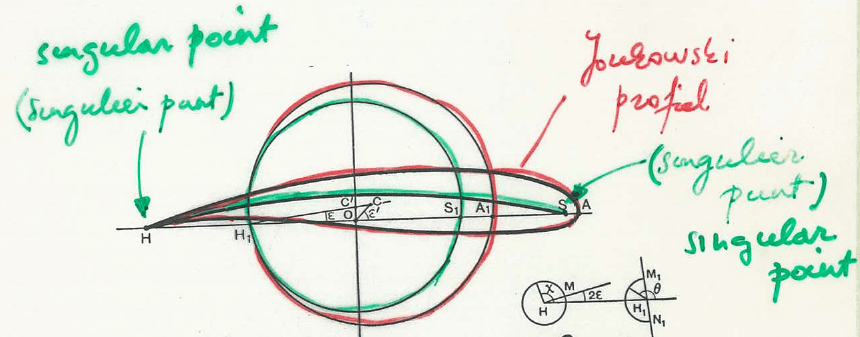 singular point
(singulier punt)
Joukowski
profiel
(singulier
punt)
singular
point
C' C
S₁ A₁ S A
ε O ε'
H H₁
M₁
χ M θ
2ε
H H₁
N₁